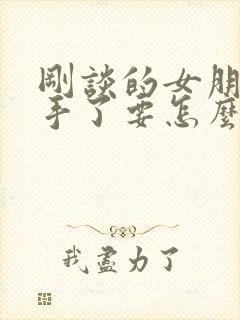 剛談的女朋
手了要怎麼
我盡力了